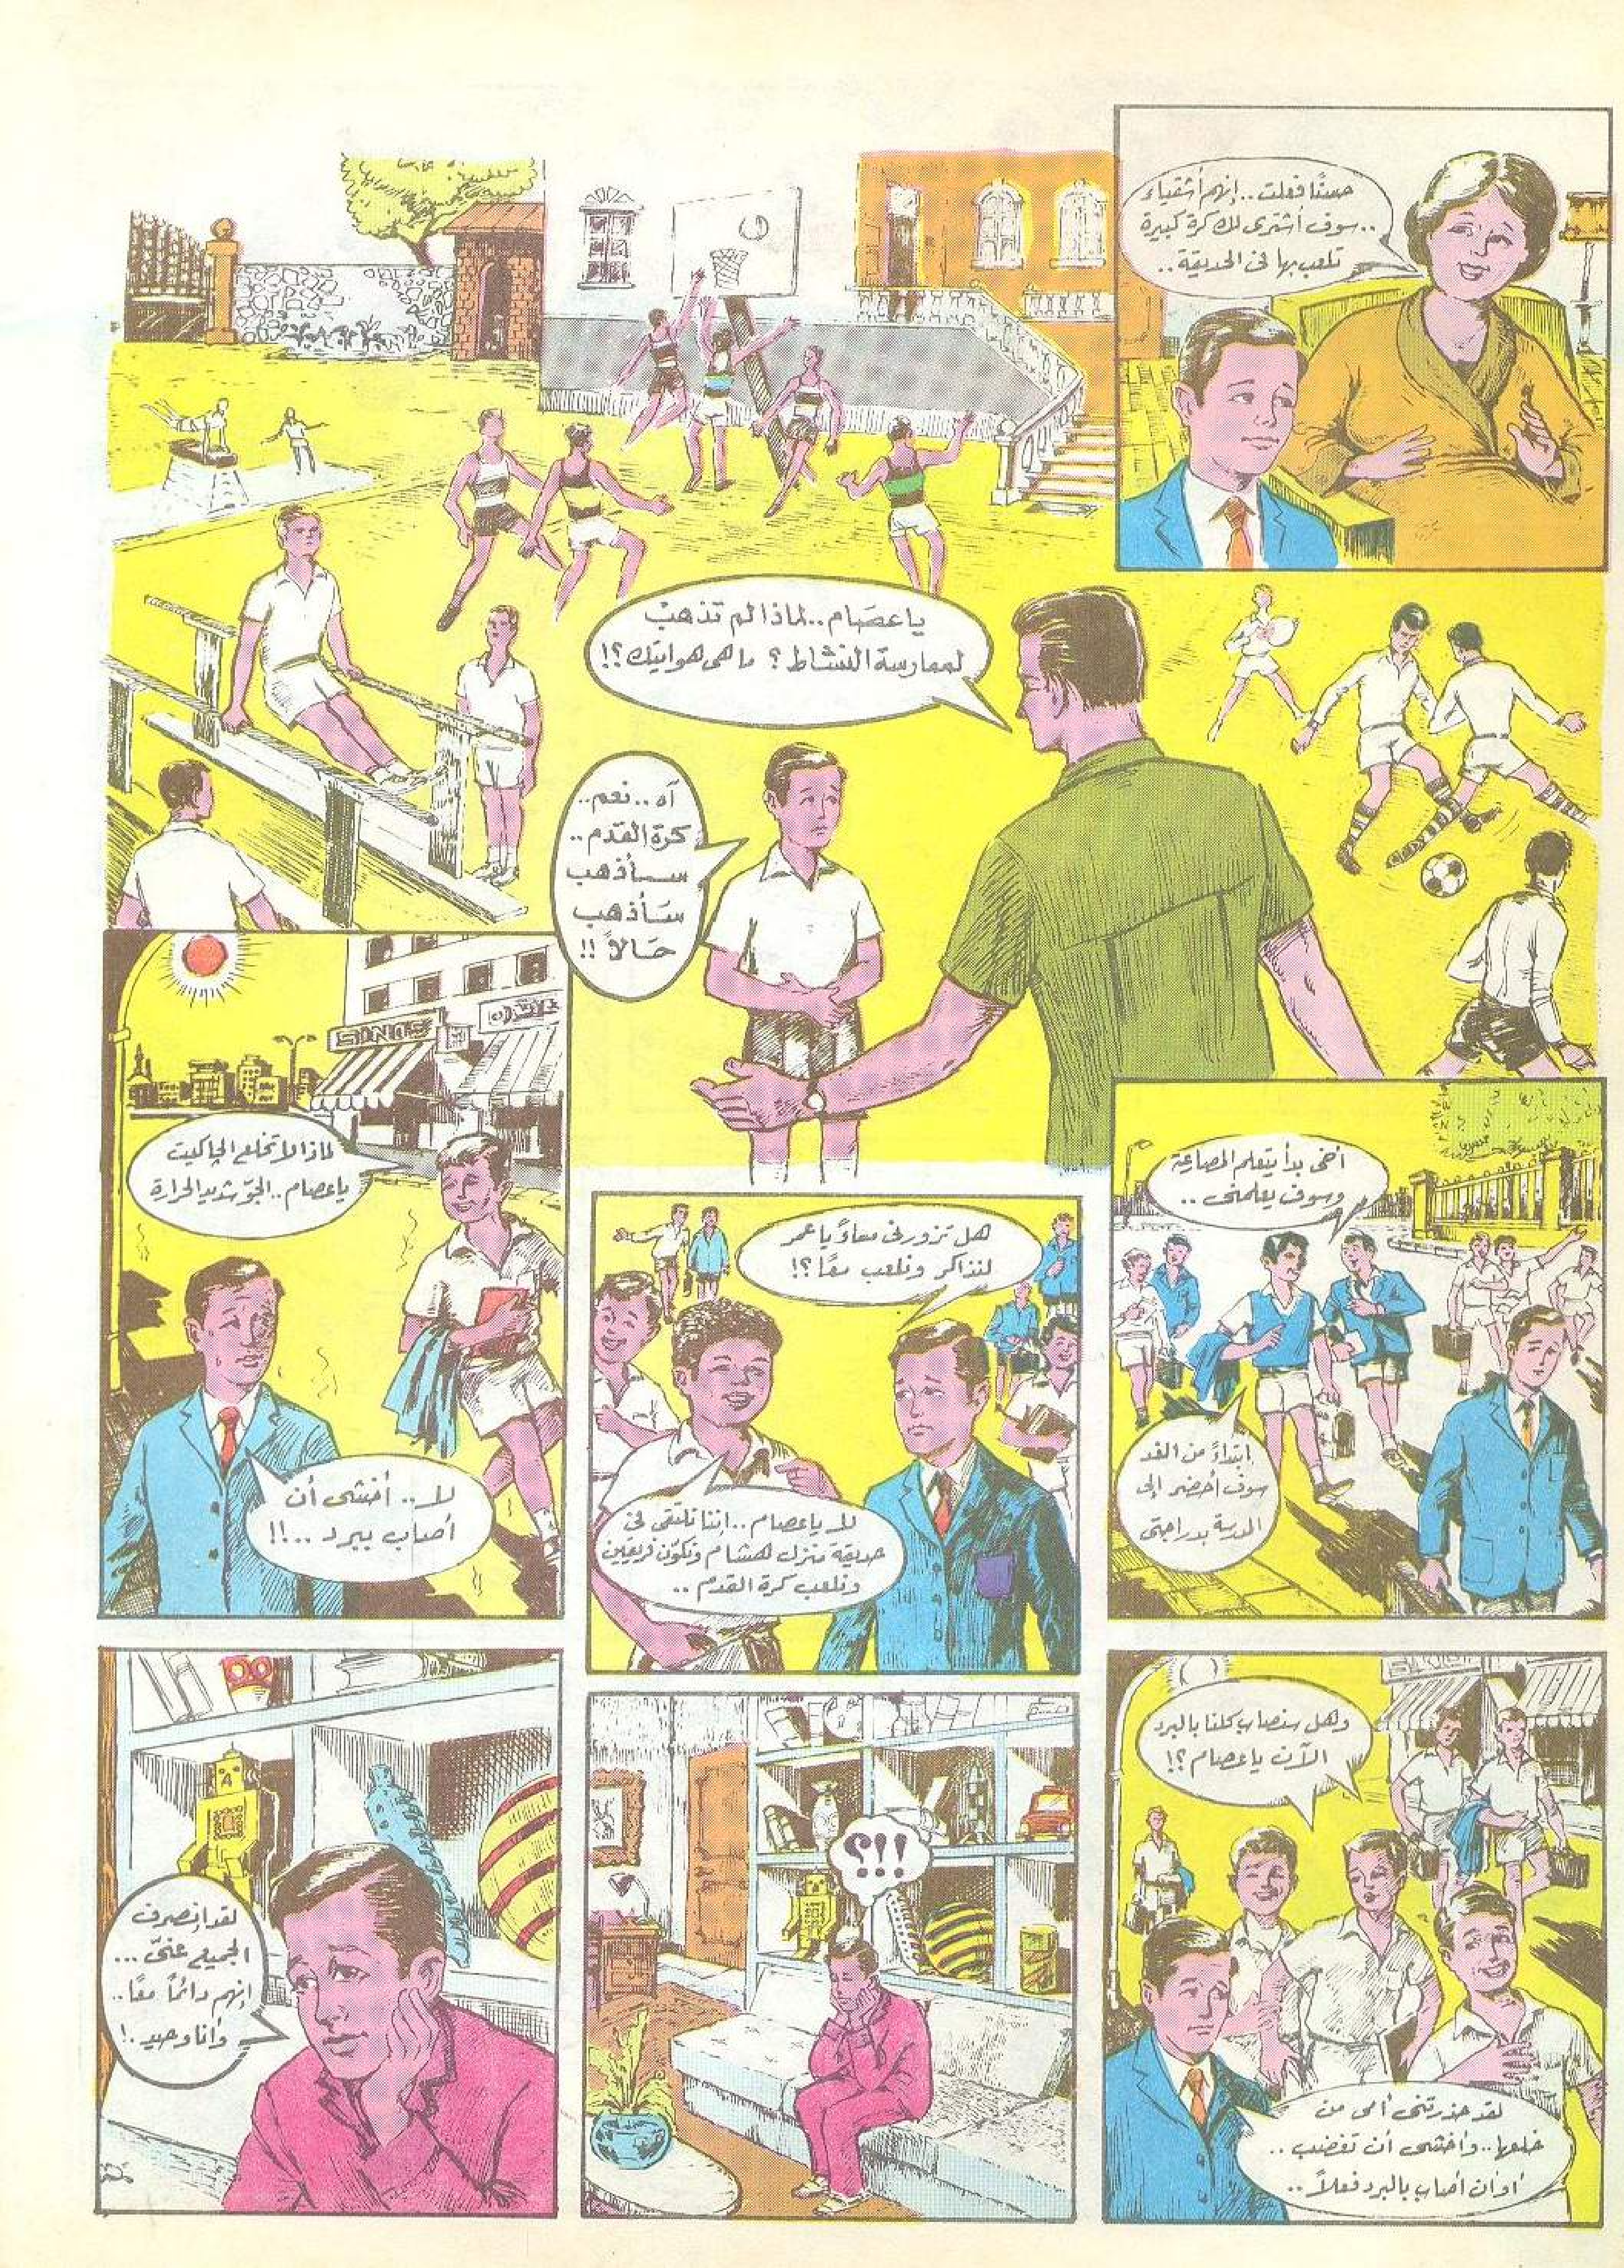 حسنًا فعلت..إنهم أشقياء
..سوف أشترى لك كرة كبيرة
تلعب بها فى الحديقة..
يا عصام..لماذا لم تذهب
لممارسة النشاط؟ ما هى هوايتك؟!
آه..نعم..
كرة القدم..
سأذهب
سأذهب
حالاً!!
أخى بدأ يتعلم المصارعة
وسوف يعلمنى..
ابتداءً من الغد
سوف أحضر إلى
المدرسة بدراجتى
هل تزورنى مساءً يا عمر
لنذاكر ونلعب معًا؟!
لا يا عصام..إننا نلتقى فى
حديقة منزل هشام ونكوّن فريقين
ونلعب كرة القدم..
SINGER
لماذا لا تخلع الجاكيت
يا عصام..الجوّ شديد الحرارة
لا..أخشى أن
أصاب ببرد..!!
وهل سنصاب كلنا بالبرد
الآن يا عصام؟!
لقد حذرتنى أمى من
خلعها..وأخشى أن تغضب..
أو أن أصاب بالبرد فعلاً..
؟!!
لقد إنصرف
الجميع عنّى...
إنهم دائمًا معًا..
وأنا وحيد.!